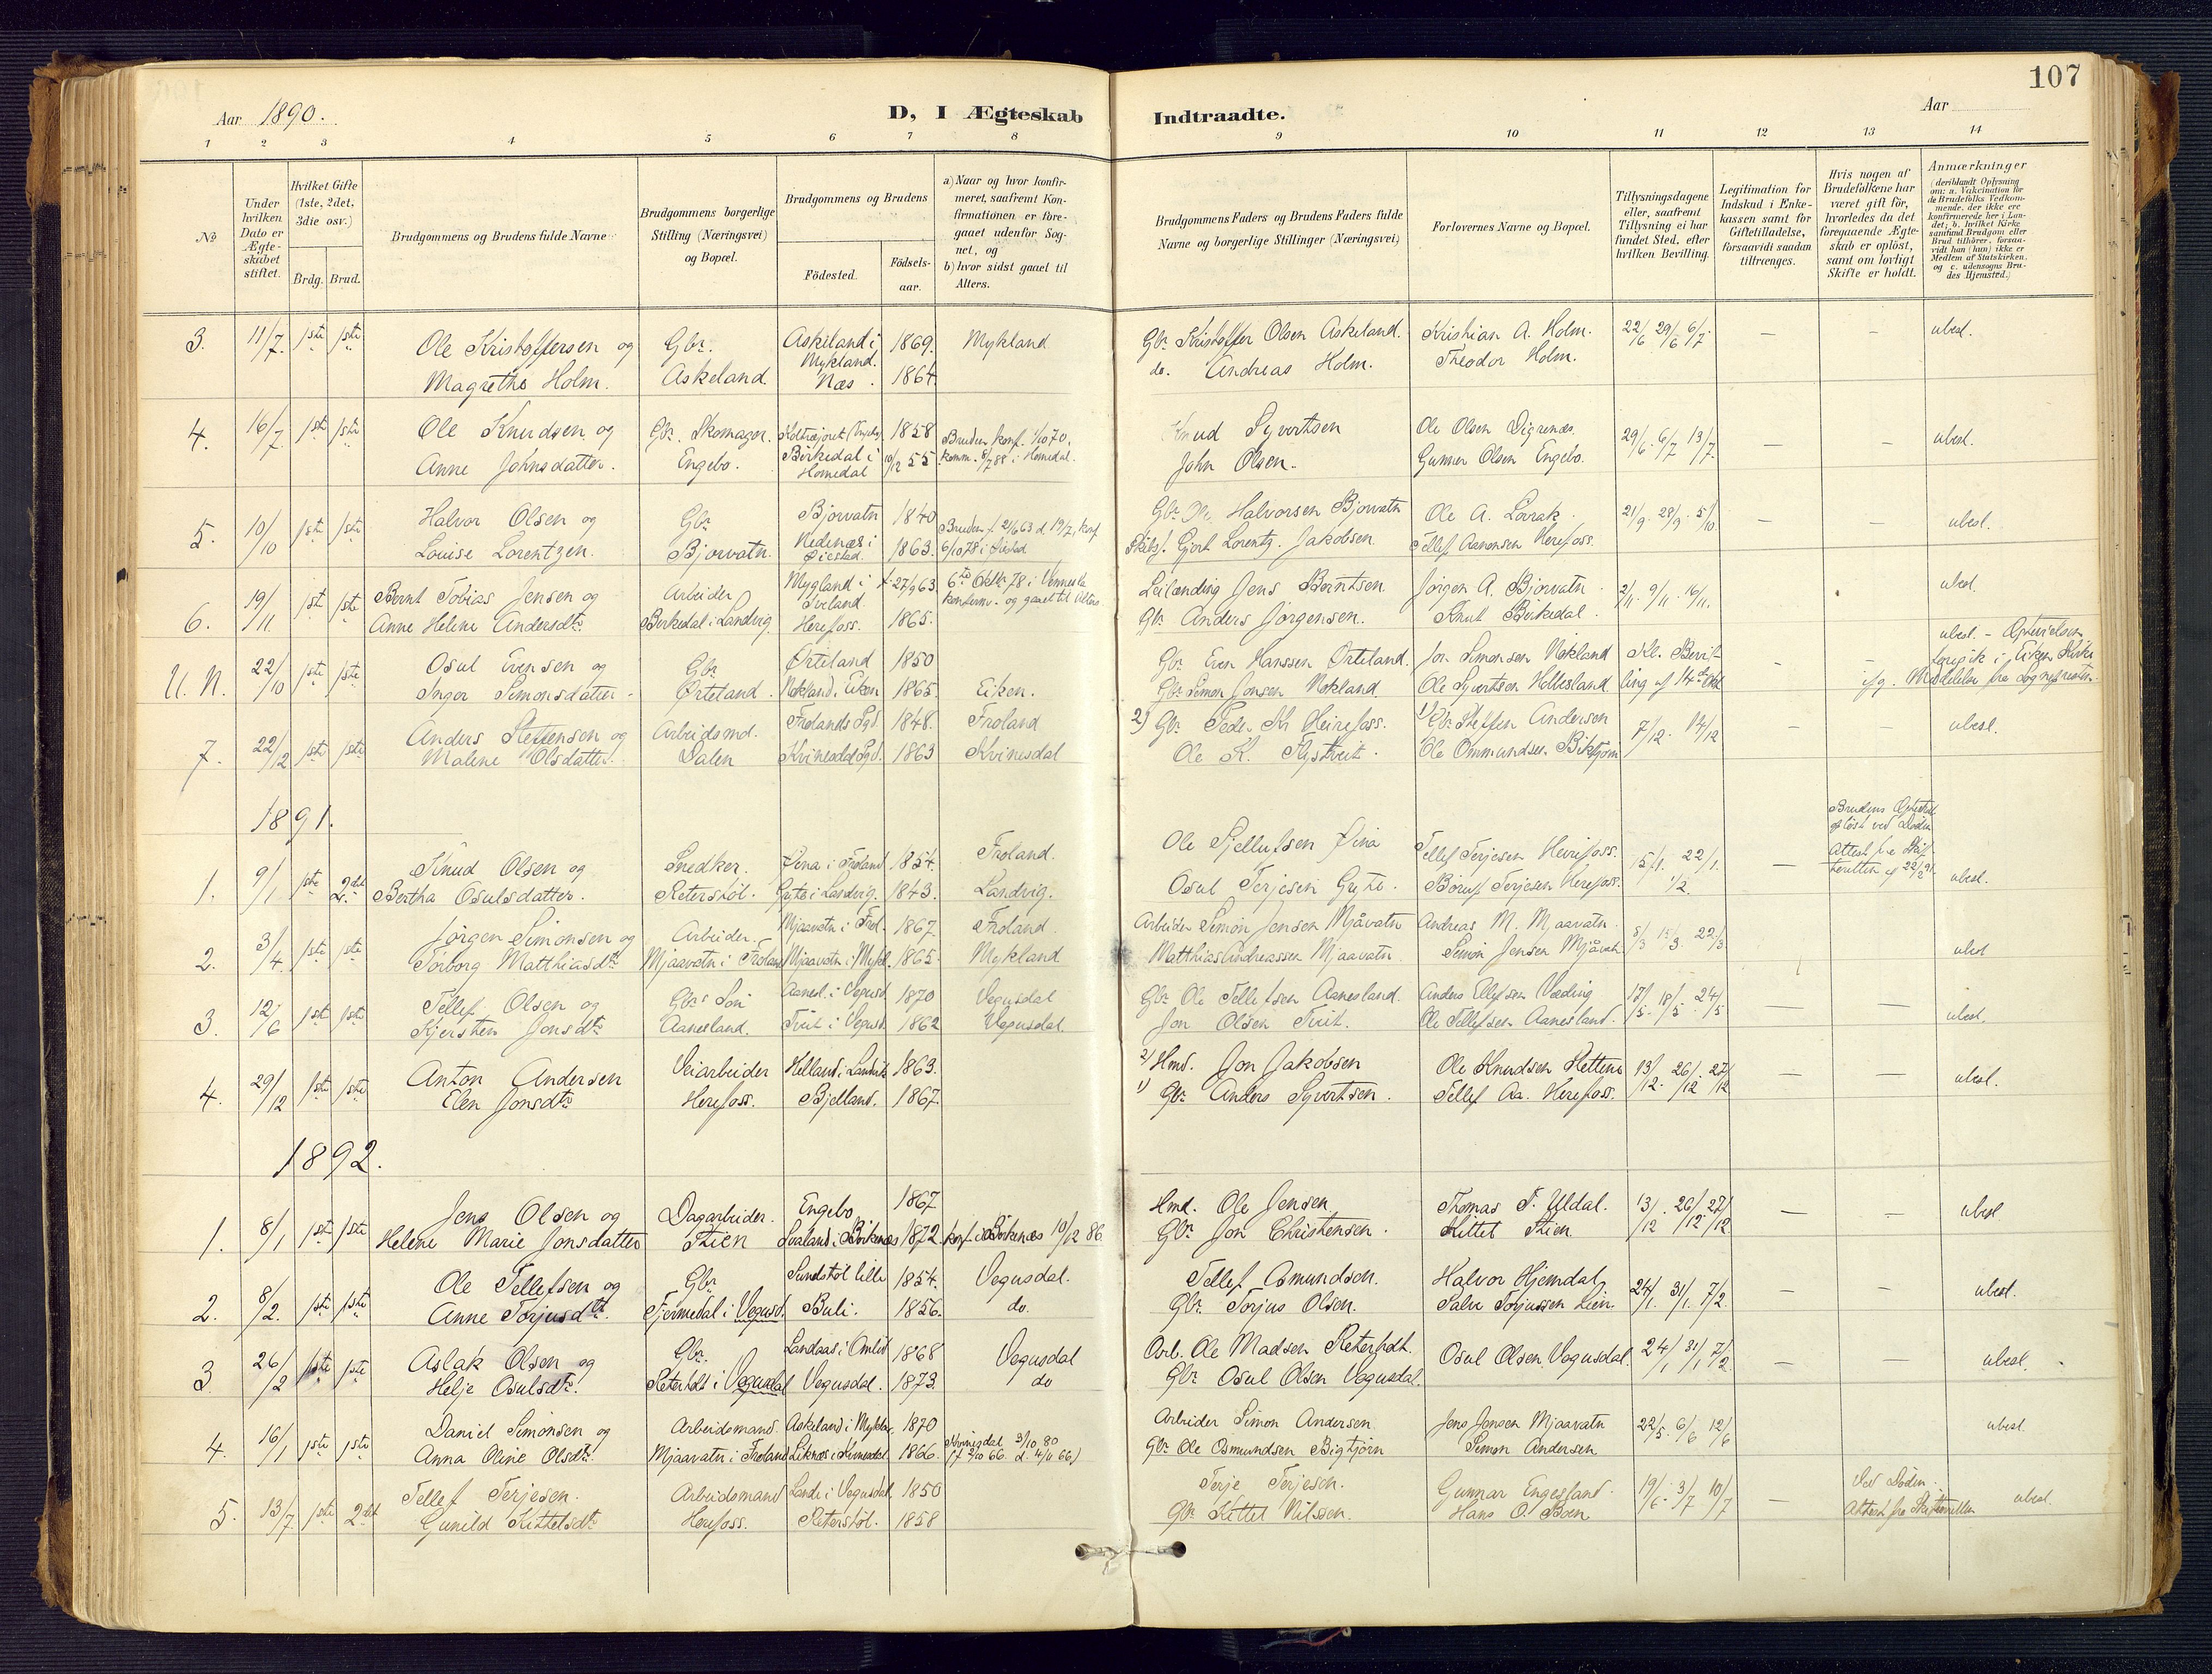 107
Aar 1890.
D, I Ægteskab Indtraadte.
Aar
1 2 3 4 5 6 7 8 9 10 11 12 13 14
No
Under hvilken Dato er Ægteskabet stiftet.
Hvilket Gifte (1ste, 2det, 3die osv.)
Brdg. Brud.
Brudgommens og Brudens fulde Navne
Brudgommens borgerlige Stilling (Næringsvei) og Bopæl.
Brudgommens og Brudens
Födested.
Födselsaar.
a) Naar og hvor konfirmeret, saafremt Konfirmationen er foregaaet udenfor Sognet, og
b) hvor sidst gaaet til Alters.
Brudgommens Faders og Brudens Faders fulde Navne og borgerlige Stillinger (Næringsvei)
Forlovernes Navne og Bopæl.
Tillysningsdagene eller, saafremt Tillysning ei har fundet Sted, efter hvilken Bevilling.
Legitimation for Indskud i Enkekassen samt for Giftetilladelse, forsaavidt saadan tiltrænges.
Hvis nogen af Brudefolkene har været gift för, hvorledes da det foregaaende Ægteskab er oplöst, samt om lovligt Skifte er holdt.
Anmærkninger
(deriblandt Oplysning om: a. Vakcination for de Brudefolks Vedkommende, der ikke ere konfirmerede her i Landet; b. hvilket Kirkesamfund Brudgom eller Brud tilhörer, forsaavidt han (hun) ikke er Medlem af Statskirken, og c. udensogns Brudes Hjemsted.)
3. 11/7. 1ste 1ste Ole Kristoffersen og Gbr. Askeland i Mykland. 1869. Mykland Gbr. Kristoffer Olsen Askeland. Kristian A. Holm. 22/6 29/6 6/7. — — ubesl.
Magrethe Holm. Askeland. Næs. 1864. do. Andreas Holm. Theodor Holm.
4. 16/7. 1ste 1ste Ole Knudsen og Gbr. Skomager. 1858 Bruden konf. 1/10 70, Knud Syvertsen Ole Olsen Digrenæs. 29/6. 6/7 13/7 — — ubesl.
Anne Johnsdatter. Engebo. Birkedal i Homedal 10/12 55 komm. 8/7 88 i Homedal. John Olsen. Gunner Olsen Engebo.
5. 10/10 1ste 1ste Halvor Olsen og Gbr. Bjorvatn 1840 Halvorsen Bjorvatn Ole A. Lovrak. 21/9. 28/9. 5/10 — — ubesl.
Louise Lorentzen. Bjorvatn. Nedenæs i Øiestad. 1863. 6/10 78 i Øiestad Skibsf. Gjert Lorentz. Jakobsen Tellef Aanonsen Herefoss.
6. 19/11. 1ste 1ste Bernt Tobias Jensen og Arbeider Mygland i Iveland. f. 27/9 63 6te Oktbr 78 i Vennesla Leilænding Jens Berntsen Jörgen A. Bjorvatn 2/11. 9/11. 16/11. ubesl.
Anne Helene Andersdtr. Birkedal i Landvig. Herefoss. 1865. konfirm. og gaaet til Alters Gbr. Anders Jörgensen. Knut Birkedal.
U. N. 22/10 1ste 1ste Osul Evensen og Gbr. Ørteland 1850 Gbr. Even Hanssen Ørteland. Jon Simonsen Nokland Kl. Bevil- — — ubesl. –
Inger Simonsdatter. Ørteland. Nokland i Eiken 1865. Eiken. Gbr. Simon Jonsen Nokland Ole Syvertsen Hellesland. ling af 14de Okt. ifg. Meddelelse fra Sognepresten.
7. 22/12 1ste 1ste Anders Steffensen og Arbeidsmd. Frolands Sgd. 1848. Froland 2) Gbr. Peder Kr. Heirefoss. 1) Gbr. Steffen Andersen 7/12. 14/12 — — ubesl.
Malene Olsdatter. Dalen Kvinesdal Sgd. 1863 Kvinesdal Ole K. Flystveit. Ole Ommundsen Biktjörn
1891.
1. 9/1 1ste 2det Knud Olsen og Snedker. Øina i Froland 1854. Froland. Ole Tjellufsen Øina Tellef Terjesen Heirefoss. 15/1. 22/1. — Brudens Ægteskab oplöst ved Döden ubesl.
Bertha Osulsdatter. Retterstöl. Grytte i Landvig. 1843. Landvig. Osul Terjesen Grytte. Böruf Terjesen Herefoss. 1/2. Attest fra Skifteretten af 22/2 91.
2. 3/4. 1ste 1ste Jörgen Simonsen og Arbeider. Mjaavatn i Frol. 1867. Froland. Arbeider Simon Jensen Mjåvatn Andreas M. Mjaavatn 8/3 15/3. 22/3 ubesl
Torborg Matthiasdtr. Mjaavatn i Froland Mjaavatn i Mykl. 1865. Mykland Matthias Andreassen Mjaavatn. Simon Jensen Mjåvatn
3. 12/6 1ste 1ste Tellef Olsen og Gbrs Sön Aanesl. i Vegusd. 1870 Vegusdal Gbr. Ole Tellefsen Aanesland. Anders Ellefsen Væding 17/5. 18/5. 24/5 — — ubesl.
Kjersten Jonsdtr. Aanesland. Tveit i Vegusd. 1862 Vegusdal. Jon Olsen Tveit. Ole Tellefsen Aanesland.
4. 29/12 1ste 1ste Anton Andersen Veiarbeider Helland i Landvik 1863. 2) Hmd. Jon Jakobsen Ole Knudsen Hettene 13/12. 26/12. 27/12 — — ubesl.
Elen Jonsdtr. Herefoss. Bjelland. 1867. 1) Gbr. Anders Syvertsen. Tellef Aa. Herefoss.
1892.
1. 8/1 1ste 1ste Jens Olsen og Dagarbeider. Engebo 1867 Hmd. Ole Jensen Thomas T. Uldal. 13/12. 26/12. 27/12 — — ubesl
Helene Marie Jonsdatter Stien Svaland i Birkenes 1872. konf. i Birkenæs 10/12 86 Gbr. Jon Christensen. Kittel Stien.
2. 8/2. 1ste 1ste Ole Tellefsen og Gbr. Sundstöl lille 1854. Vegusdal. Tellef Asmundsen. Halvor Hjemdal, 24/1. 31/1. 7/2. — — ubesl.
Anne Torjusdtr. Tjermedal i Vegusd. Buli. 1856. do. Gbr. Torjus Olsen. Salve Torjussen Lien.
3 26/2 1ste 1ste Aslak Olsen og Gbr. Landaas i Omlid 1868 Vegusdal Arb. Ole Madsen Reterholt. Osul Olsen Vegusdal. 24/1 31/1 7/2 — — ubesl.
Helje Osulsdtr. Reterholt i Vegusdal Vegusdal. 1873. do Gbr. Osul Olsen Vegusdal.
4. 16/1 1ste 1ste Daniel Simonsen og Arbeidsmand. Askeland i Mykland. 1870 Arbeider Simon Andersen. Jens Jensen Mjaavatn 22/5. 6/6 12/6 ubesl.
Anna Oline Olsdtr. Mjaavatn i Froland Leknes i Kvinesdal. 1866. 3/10 80 (f 2/10 66. d. 4/11 66) Gbr. Ole Osmundsen Bigtjörn Simon Andersen
5. 13/7. 1ste 2det Tellef Terjesen. Arbeidsmand Lande i Vegusdal, 1850 Terje Terjesen. Gunnar Engesland. 19/6. 3/7 10/7 — Ved Döden. ubesl.
Gunild Kittelsdtr. Herefoss. Reterstöl. 1858 Gbr. Kittel Nilssen. Hans O. Boen Attest fra Skifteretten